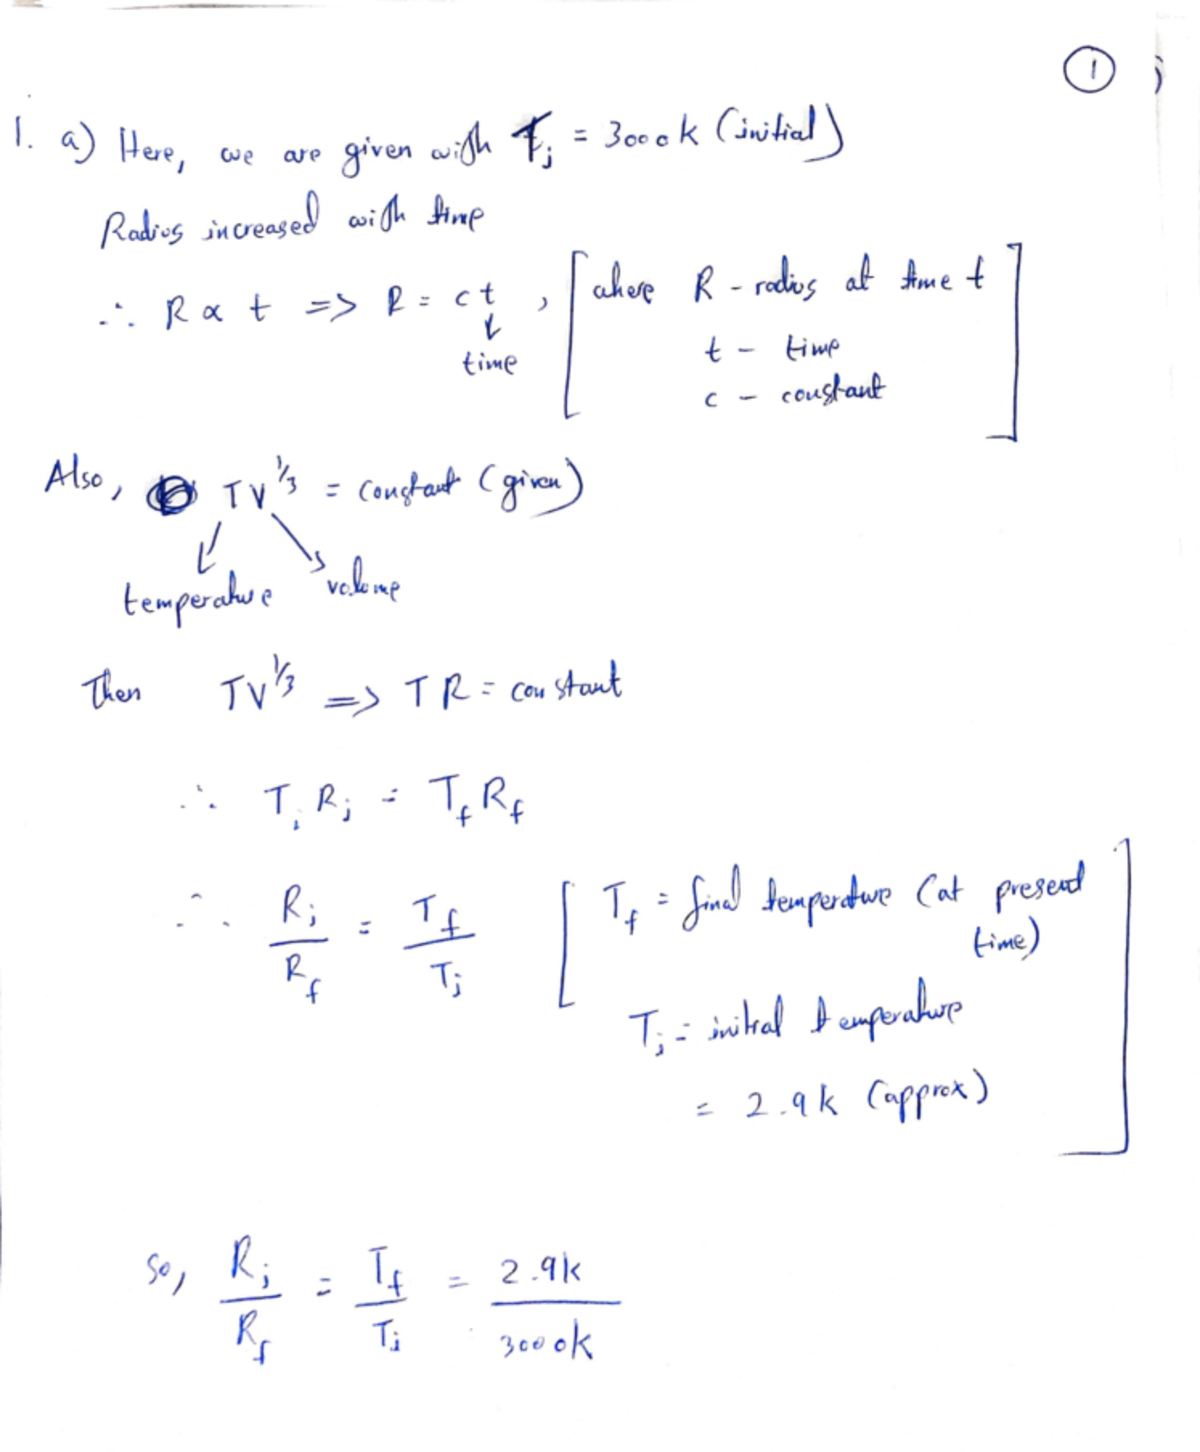 ①
1. a) Here, we are given with Ti = 3000k (initial)
Radius increased with time
∴ R ∝ t => R = ct , [where R - radius at time t
time
t - time
c - constant]
Also, TV^1/3 = constant (given)
temperature volume
Then TV^1/3 => TR = constant
∴ Ti Ri = Tf Rf
∴ Ri/Rf = Tf/Ti [Tf = final temperature (at present
time)
Ti = initial temperature
= 2.9k (approx)]
So, Ri/Rf = Tf/Ti = 2.9k/3000k